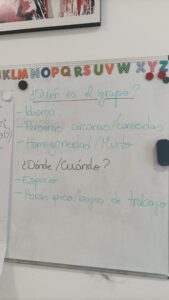 KLMNOPQRSUVWXYZ
¿Quién es el grupo?
- Idioma
- Personas cercanas/conocidas
- Homogeneidad/Mixto
¿Dónde/Cuándo?
- Espacio
- Horas pico/bajas de trabajo